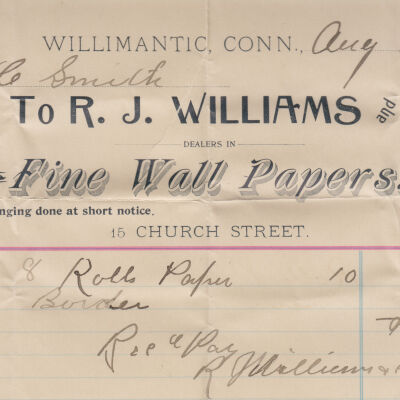 WILLIMANTIC, CONN., Aug
Smith
To R. J. WILLIAMS
DEALERS IN
Fine Wall Papers.
nging done at short notice.
15 CHURCH STREET.
8 Rolls Paper 10
Border
Rec'd Pay
R J Williams